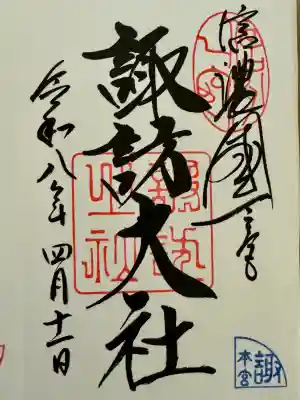 信濃國一之宮
諏訪大社
令和八年四月十一日
諏
本宮